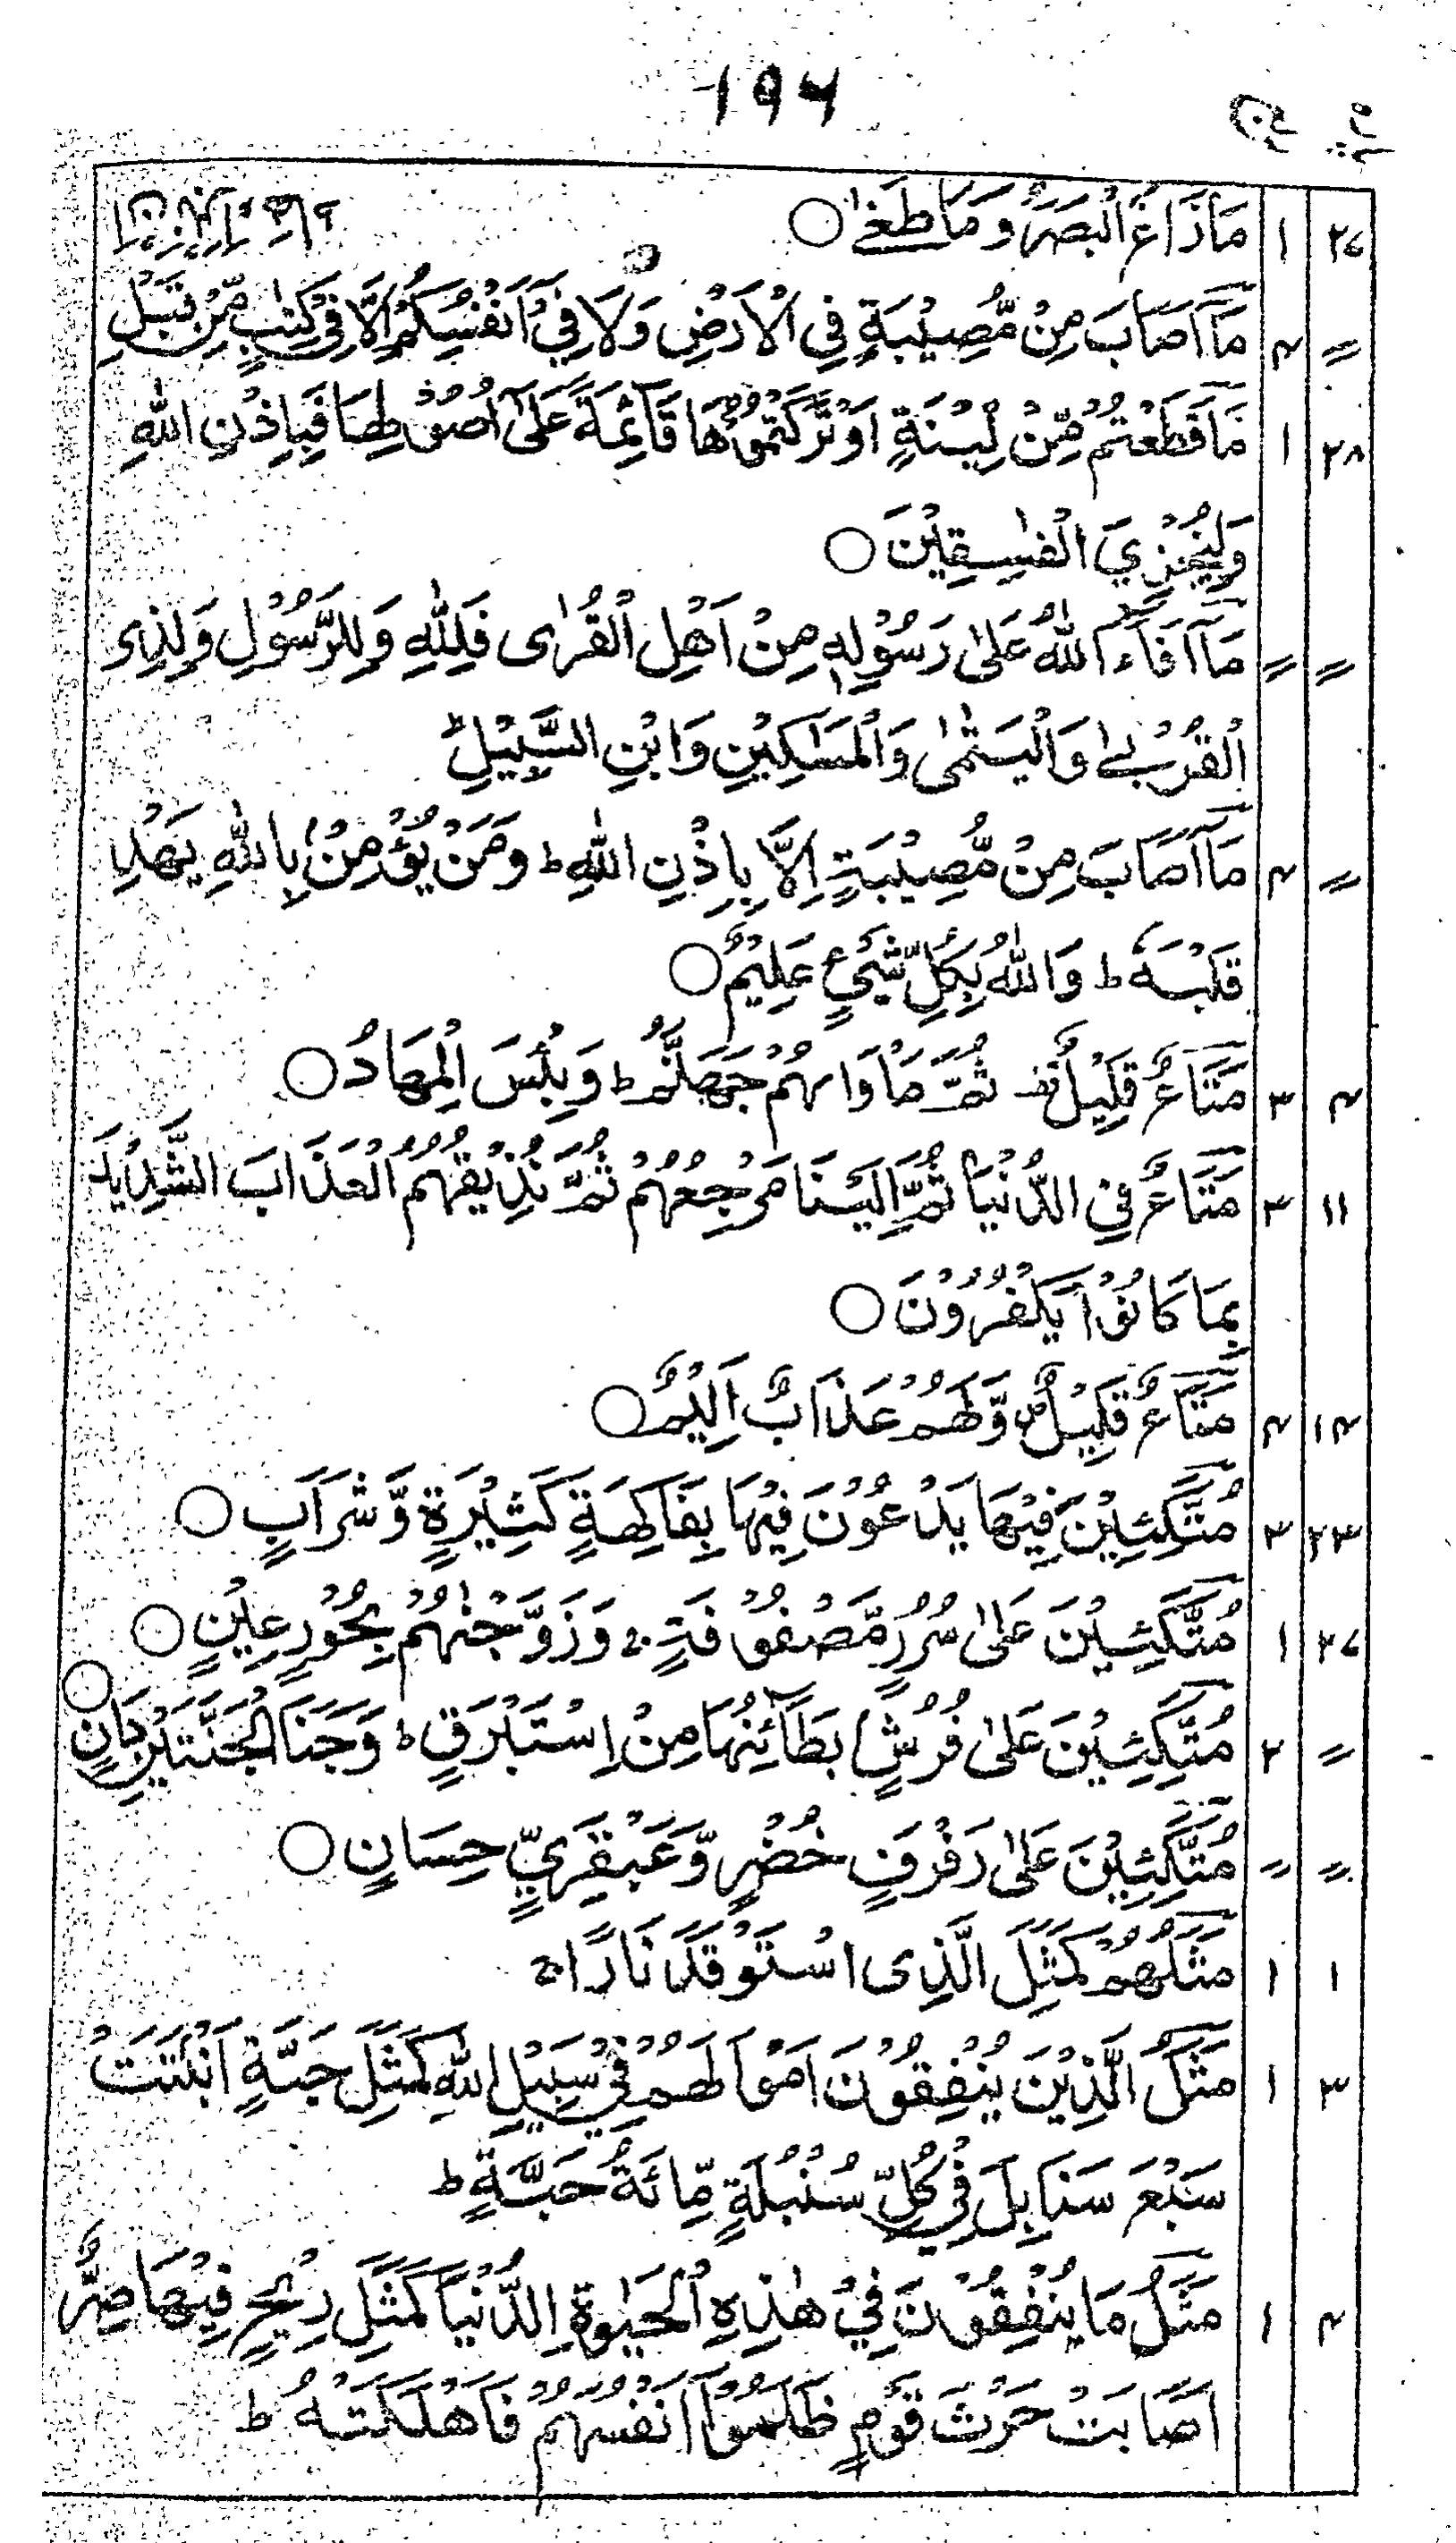 ۱۹۶
پارہ
مَا زَاغَ الْبَصَرُ وَمَا طَغٰی ○ ۱ ۲۷
مَاۤ اَصَابَ مِنْ مُّصِیْبَةٍ فِی الْاَرْضِ وَلَا فِیْۤ اَنْفُسِكُمْ اِلَّا فِیْ كِتٰبٍ مِّنْ قَبْلِ ۴ 〃
مَا قَطَعْتُمْ مِّنْ لِّیْنَةٍ اَوْ تَرَكْتُمُوْهَا قَآئِمَةً عَلٰۤی اُصُوْلِهَا فَبِاِذْنِ اللّٰهِ ۱ ۲۸
وَلِیُخْزِیَ الْفٰسِقِیْنَ ○
مَاۤ اَفَآءَ اللّٰهُ عَلٰی رَسُوْلِهٖ مِنْ اَهْلِ الْقُرٰی فَلِلّٰهِ وَلِلرَّسُوْلِ وَلِذِی 〃 〃
الْقُرْبٰی وَالْیَتٰمٰی وَالْمَسٰكِیْنِ وَابْنِ السَّبِیْلِ ؕ
مَاۤ اَصَابَ مِنْ مُّصِیْبَةٍ اِلَّا بِاِذْنِ اللّٰهِ ط وَمَنْ یُّؤْمِنْۢ بِاللّٰهِ یَهْدِ ۴ 〃
قَلْبَهٗ ط وَاللّٰهُ بِكُلِّ شَیْءٍ عَلِیْمٌ ○
مَتَاعٌ قَلِیْلٌ قف ثُمَّ مَاْوَاىهُمْ جَهَنَّمُ ط وَبِئْسَ الْمِهَادُ ○ ۳ ۴
مَتَاعٌ فِی الدُّنْیَا ثُمَّ اِلَیْنَا مَرْجِعُهُمْ ثُمَّ نُذِیْقُهُمُ الْعَذَابَ الشَّدِیْدَ ۳ ۱۱
بِمَا كَانُوْا یَكْفُرُوْنَ ○
مَتَاعٌ قَلِیْلٌ ص وَّلَهُمْ عَذَابٌ اَلِیْمٌ ○ ۴ ۱۴
مُتَّكِـِٕیْنَ فِیْهَا یَدْعُوْنَ فِیْهَا بِفَاكِهَةٍ كَثِیْرَةٍ وَّشَرَابٍ ○ ۳ ۲۳
مُتَّكِـِٕیْنَ عَلٰی سُرُرٍ مَّصْفُوْفَةٍ ج وَزَوَّجْنٰهُمْ بِحُوْرٍ عِیْنٍ ○ ۱ ۲۷
مُتَّكِـِٕیْنَ عَلٰی فُرُشٍۭ بَطَآئِنُهَا مِنْ اِسْتَبْرَقٍ ط وَجَنَا الْجَنَّتَیْنِ دَانٍ ○ ۲ 〃
مُتَّكِـِٕیْنَ عَلٰی رَفْرَفٍ خُضْرٍ وَّعَبْقَرِیٍّ حِسَانٍ ○ 〃 〃
مَثَلُهُمْ كَمَثَلِ الَّذِی اسْتَوْقَدَ نَارًا ج ۱ ۱
مَثَلُ الَّذِیْنَ یُنْفِقُوْنَ اَمْوَالَهُمْ فِیْ سَبِیْلِ اللّٰهِ كَمَثَلِ حَبَّةٍ اَنْۢبَتَتْ ۱ ۳
سَبْعَ سَنَابِلَ فِیْ كُلِّ سُنْۢبُلَةٍ مِّائَةُ حَبَّةٍ ط
مَثَلُ مَا یُنْفِقُوْنَ فِیْ هٰذِهِ الْحَیٰوةِ الدُّنْیَا كَمَثَلِ رِیْحٍ فِیْهَا صِرٌّ ۱ ۴
اَصَابَتْ حَرْثَ قَوْمٍ ظَلَمُوْۤا اَنْفُسَهُمْ فَاَهْلَكَتْهُ ط